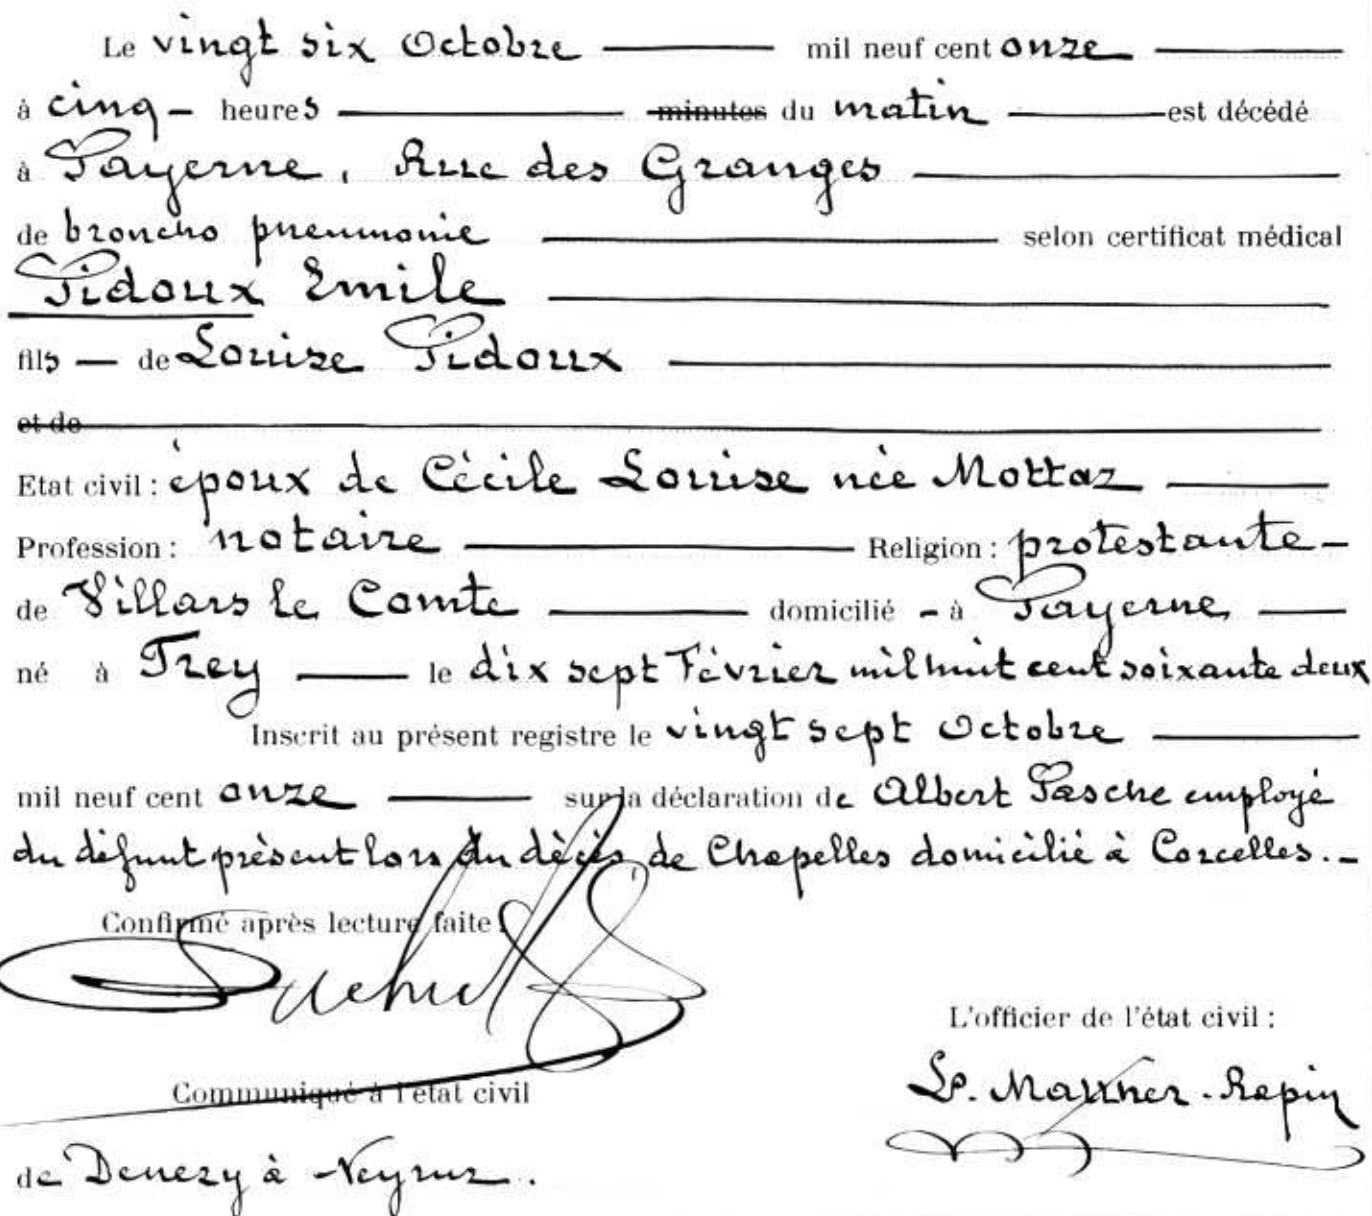 Le vingt six Octobre mil neuf cent onze
à cinq heures minutes du matin est décédé
à Payerne, Rue des Granges
de broncho pneumonie selon certificat médical
Pidoux Emile
fils de Louise Pidoux
et de
Etat civil : époux de Cécile Louise née Mottaz
Profession : notaire Religion : protestante
de Villars le Comte domicilié à Payerne
né à Trey le dix sept Février mil huit cent soixante deux
Inscrit au présent registre le vingt sept Octobre
mil neuf cent onze sur la déclaration de Albert Pasche employé
du défunt présent lors du décès de Chapelles domicilié à Corcelles.
Confirmé après lecture faite :
L'officier de l'état civil :
Communiqué à l'état civil
de Denezy à Neyruz.